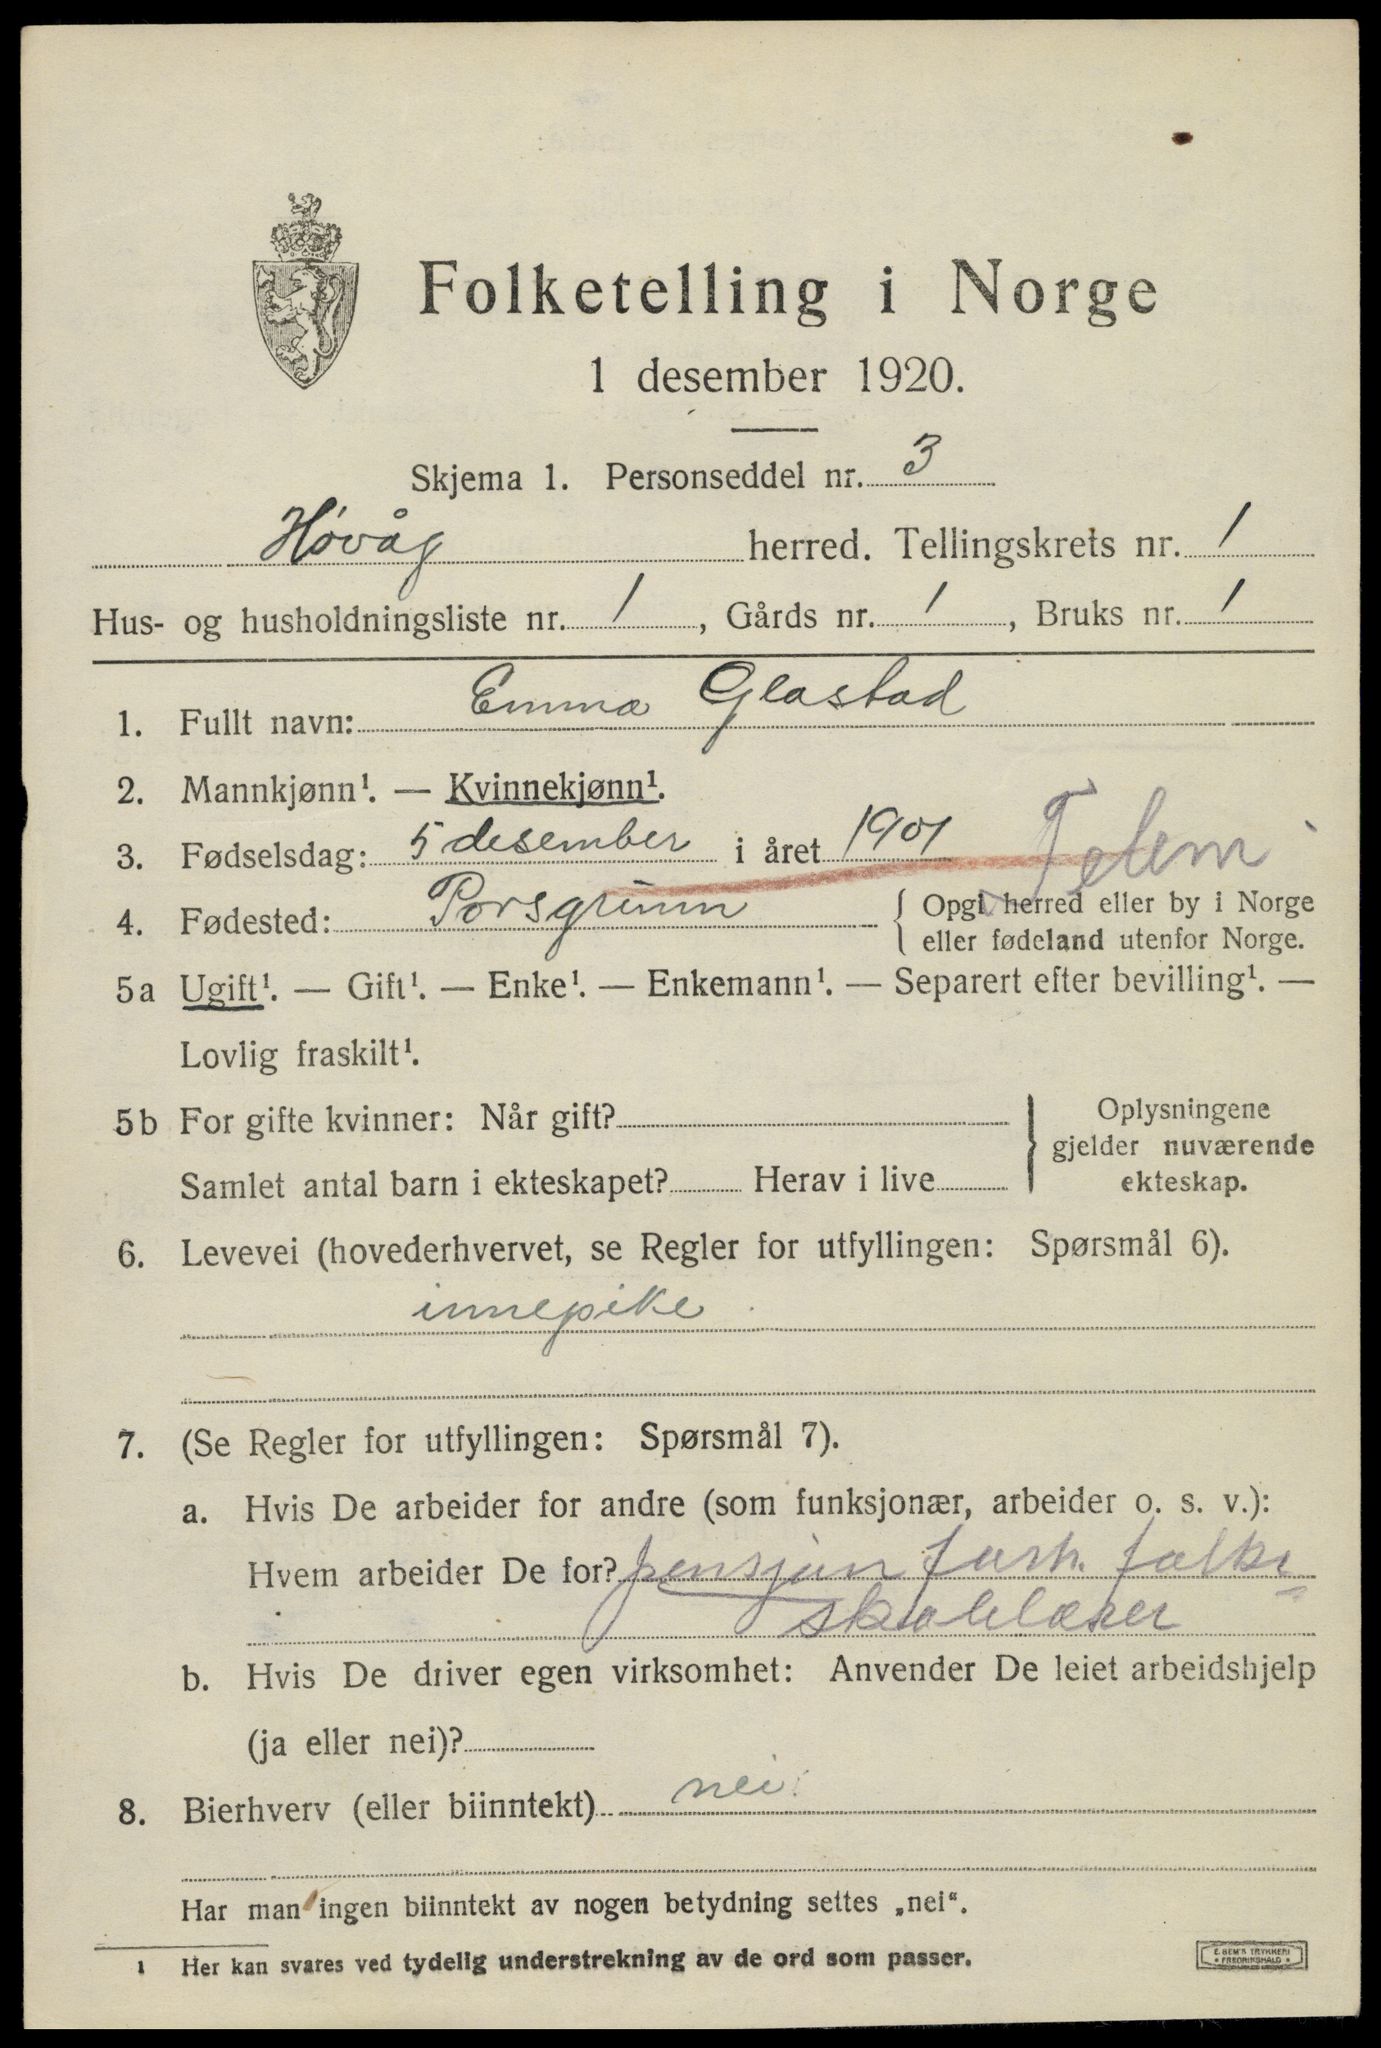 Folketelling i Norge
1 desember 1920.
Skjema 1. Personseddel nr. 3
Høvåg herred. Tellingskrets nr. 1
Hus- og husholdningsliste nr. 1, Gårds nr. 1, Bruks nr. 1
1. Fullt navn: Emma Glastad
2. Mannkjønn¹. — Kvinnekjønn¹.
3. Fødselsdag: 5 desember i året 1901
Telem
4. Fødested: Porsgrunn { Opgi herred eller by i Norge
eller fødeland utenfor Norge.
5a Ugift¹. — Gift¹. — Enke¹. — Enkemann¹. — Separert efter bevilling¹. —
Lovlig fraskilt¹.
5b For gifte kvinner: Når gift? } Oplysningene
gjelder nuværende
ekteskap.
Samlet antal barn i ekteskapet? Herav i live
6. Levevei (hovederhvervet, se Regler for utfyllingen: Spørsmål 6).
innepike
7. (Se Regler for utfyllingen: Spørsmål 7).
a. Hvis De arbeider for andre (som funksjonær, arbeider o. s. v.):
Hvem arbeider De for? pensjon forh. folke=
skolelærer
b. Hvis De driver egen virksomhet: Anvender De leiet arbeidshjelp
(ja eller nei)?
8. Bierhverv (eller biinntekt) nei.
Har man ingen biinntekt av nogen betydning settes „nei“.
1 Her kan svares ved tydelig understrekning av de ord som passer.
E. SEM'S TRYKKERI
• FREDRIKSHALD •